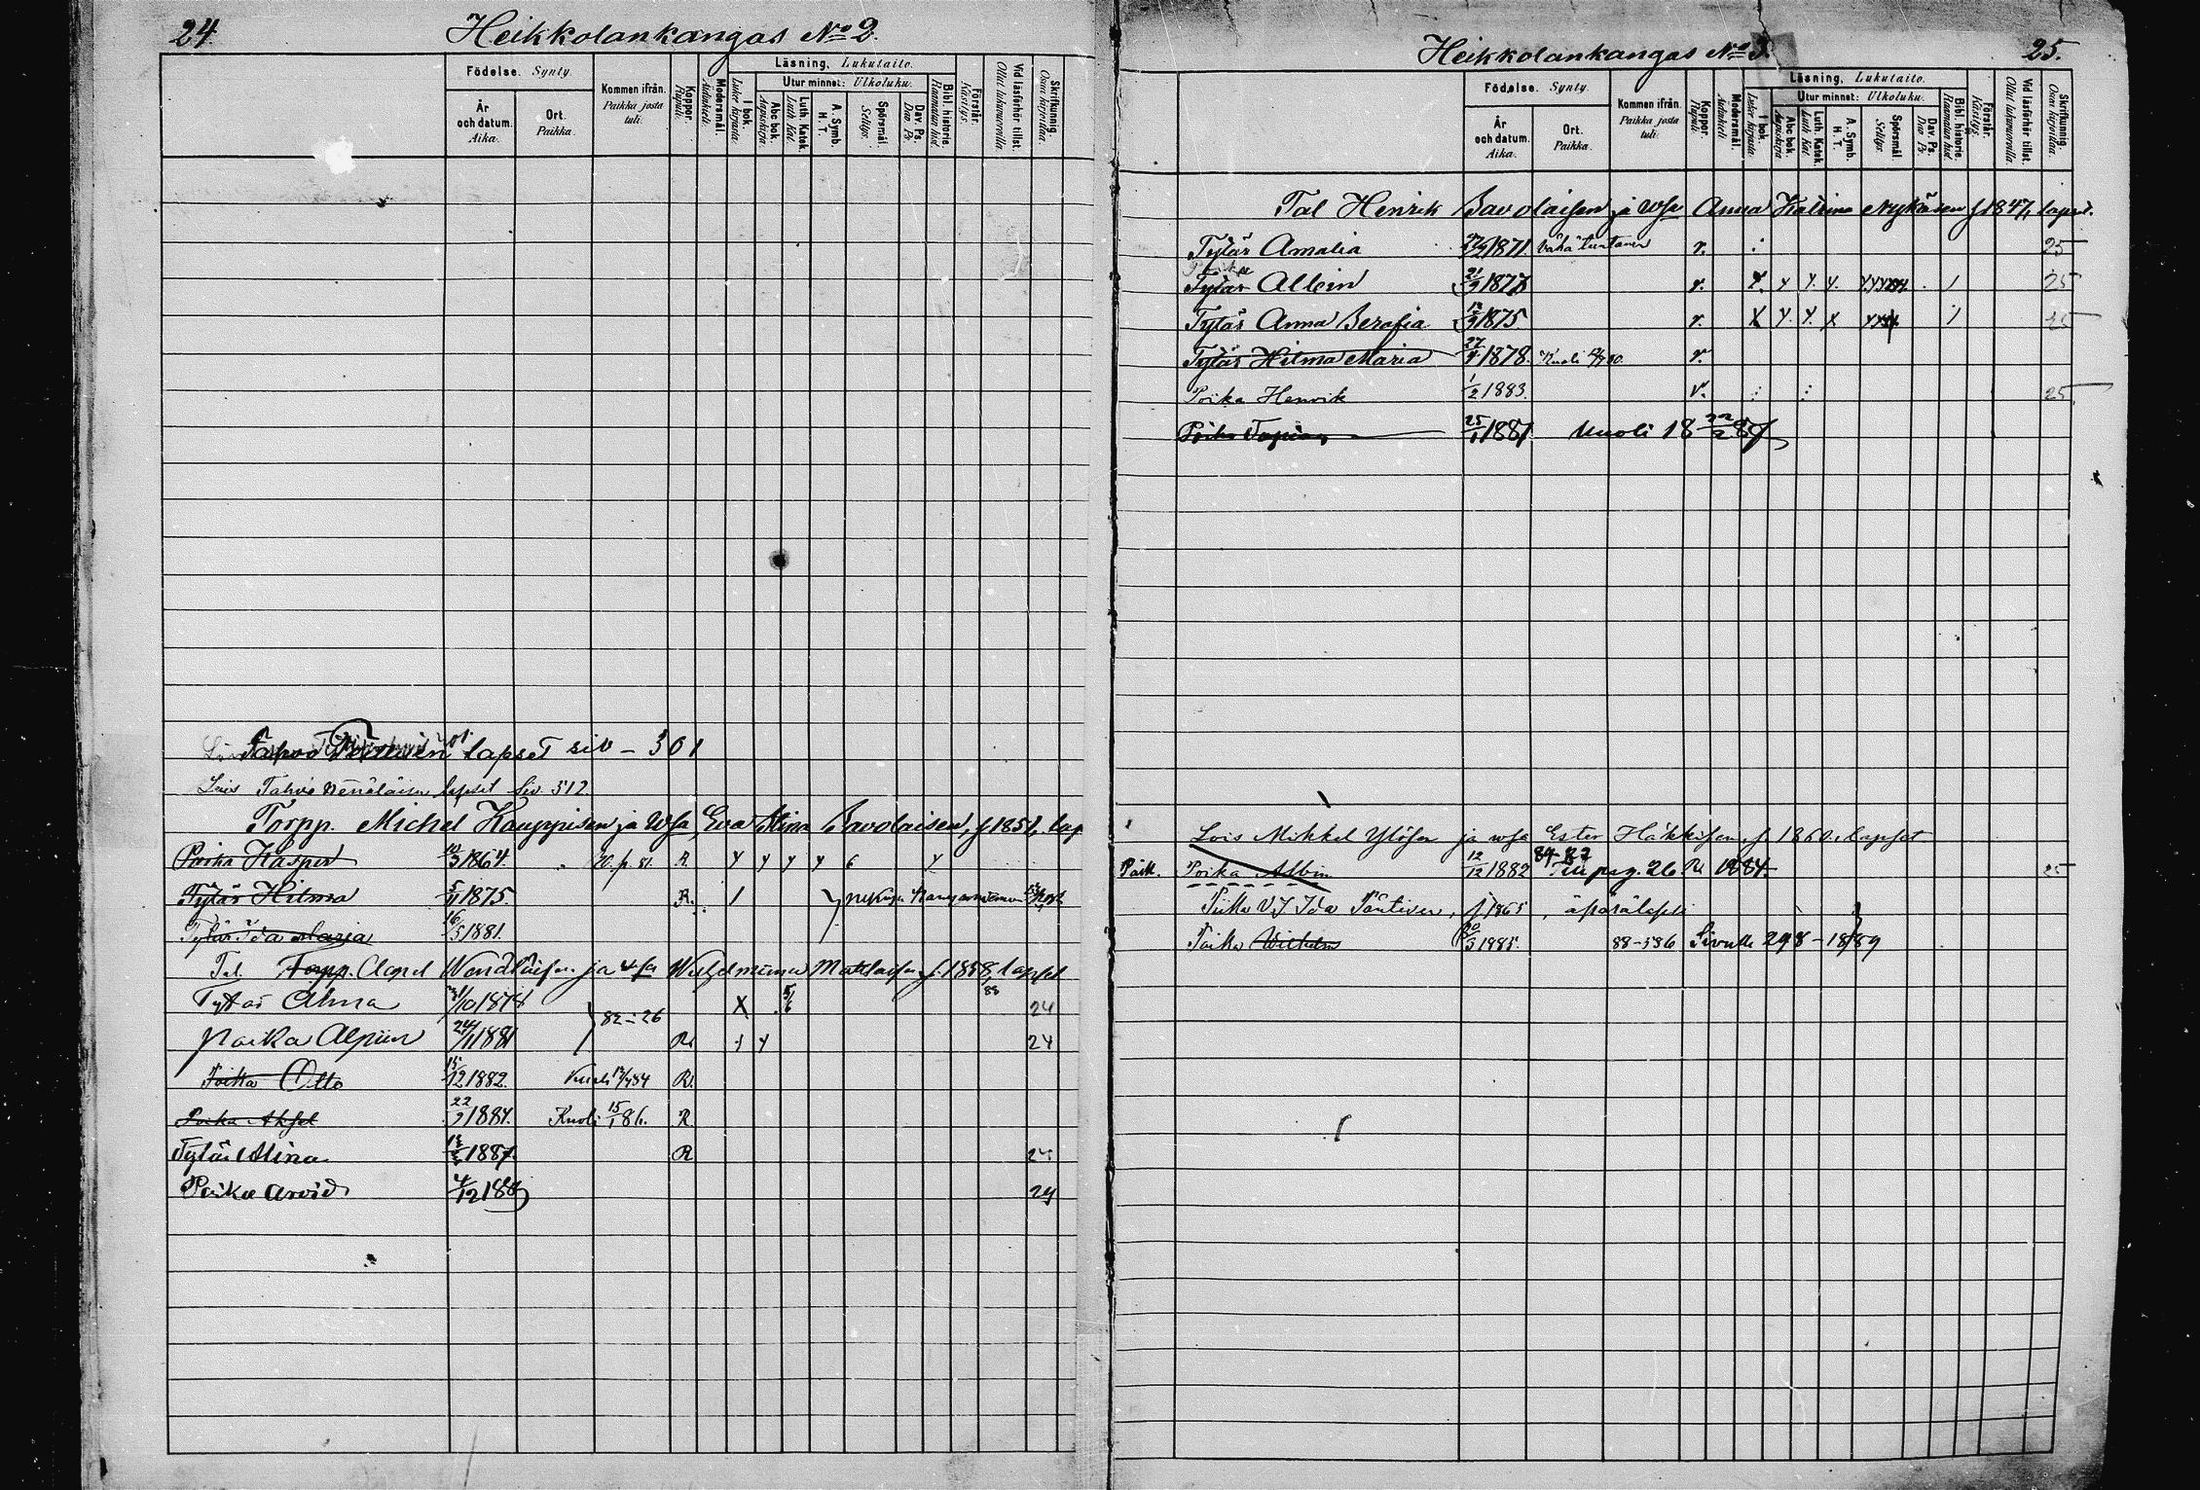 24.
Heikkolankangas No 2.
Födelse. Synty.
År och datum. Aika.
Ort. Paikka.
Kommen ifrån. Paikka josta tuli.
Koppor. Rupuli.
Modersmål. Äidinkieli.
Läsning, Lukutaito.
I bok. Luku kirjasta.
Utur minnet: Ulkoluku.
Abc bok. Aapiskirja.
Luth. Katek. Luth Kat.
A. Symb. H. T.
Spörsmål. Selitys.
Dav. Ps. Dav. Ps.
Bibl. historie. Raamatun hist.
Förstår. Käsitys.
Vid läsförhör tillst. Ollut lukuvuorolla.
Skrifkunnig. Osaa kirjoittaa.
lapset siv – 301
Lois Tahvo Venäläisen lapset Siv. 512.
Torpp. Michel Kauppisen ja wsa Eva Stina Savolaisen, f 1851. lap
Poika Kasper 1864. R
Tytär Hilma 1875. R.
Tytär Ida Maria 16/5 1881.
Tal. Torpp. Axel Venäläisen ja wsa Wilhelmiina f. 1858, lapset
Tytär Alma X 24
Poika Alpiin 24/11 1881 82–26 R. 24
Poika Otto 15/12 1882. Kuoli R.
Poika Aksel 22/9 1884. Kuoli 15/1 86. R
Tytär Alina 1887. R 24
Poika Arvid 4/12 188 24
25.
Heikkolankangas No 3.
Födelse. Synty.
År och datum. Aika.
Ort. Paikka.
Kommen ifrån. Paikka josta tuli.
Koppor. Rupuli.
Modersmål. Äidinkieli.
Läsning, Lukutaito.
I bok. Luku kirjasta.
Utur minnet: Ulkoluku.
Abc bok. Aapiskirja
Luth. Katek. Luth Kat.
A. Symb. H. T.
Spörsmål. Selitys.
Dav. Ps. Dav. Ps.
Bibl. historie. Raamatun hist.
Förstår. Käsitys.
Vid läsförhör tillst. Ollut lukuvuorolla
Skrifkunnig. Osaa kirjoittaa.
Tal Henrik Savolaisen ja wsa Anna Katrina Nykäsen f 1847, lapset.
Tytär Amalia 1871. r. 25
Poika Tytär Albin 21/9 187 r. 25
Tytär Anna Serafia 1875 r. 25
Tytär Hilma Maria 27/4 1878. Kuoli r.
Poika Henrik 1/2 1883. r. 25
Poika 25/1 1887 Kuoli 18 22/2 87
Lois Mikkel Ylösen ja wsa Ester Häkkisen, f. 1860. lapset
Poik. Poika Albin 12/12 1882 84–87 pag. 26 R. 1884. 25
Piika Ida f 1865, äpärälapsi
Poika Wilhelm 1885. 88–586 Sivulle 298 – 1889